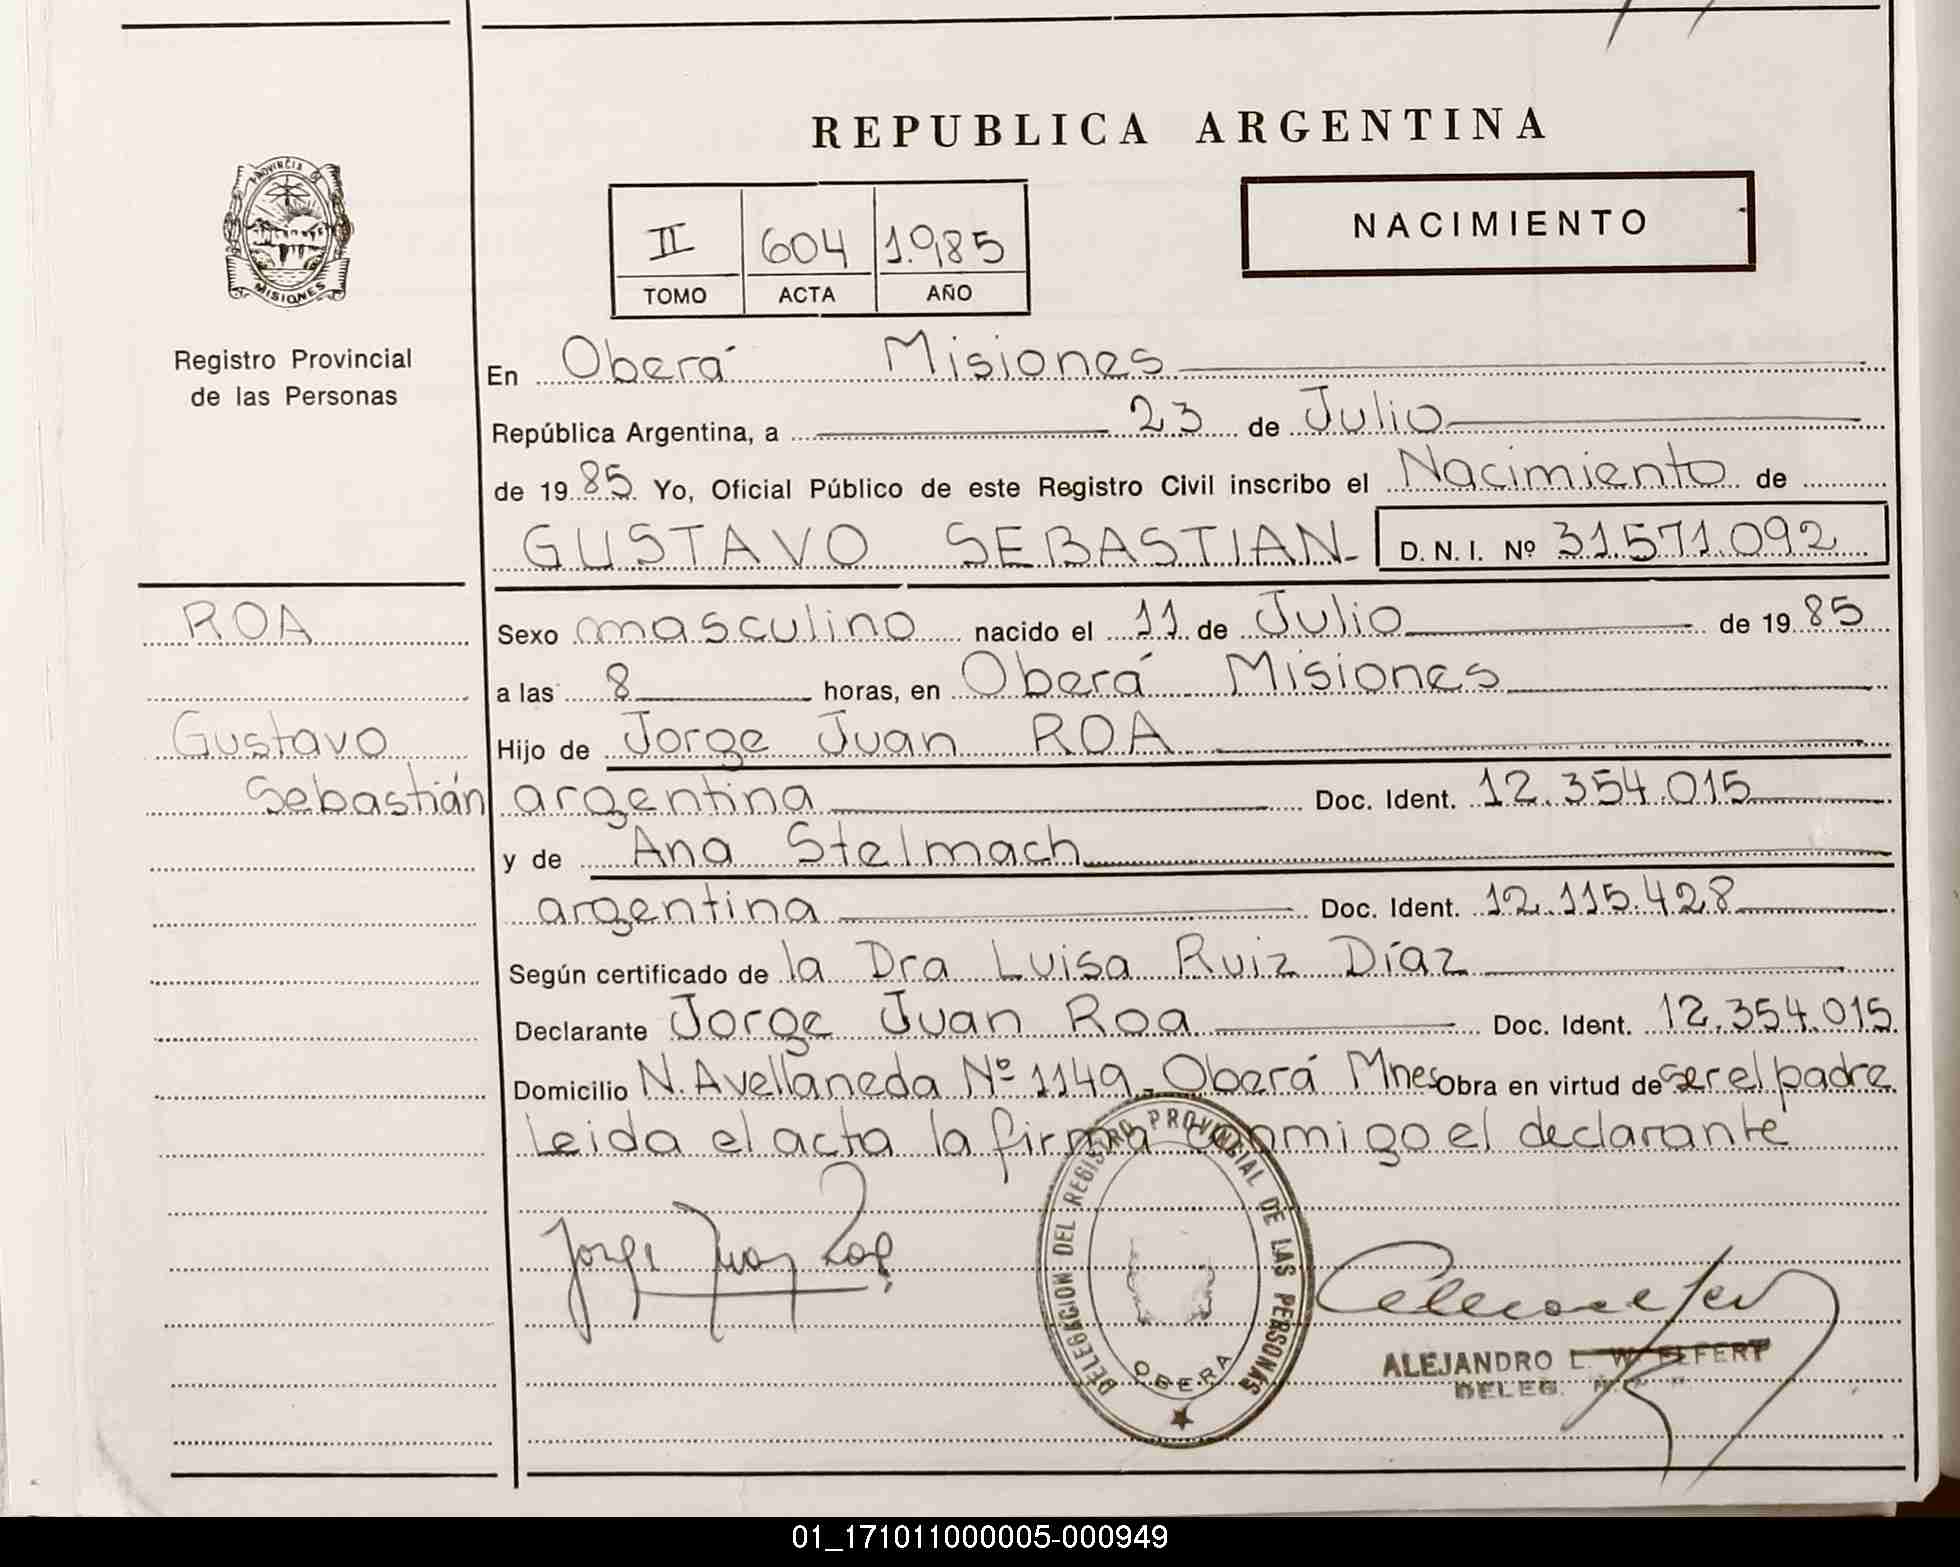 REPUBLICA ARGENTINA
PROVINCIA DE
MISIONES
Registro Provincial
de las Personas
II 604 1.985
TOMO ACTA AÑO
NACIMIENTO
En Oberá Misiones
República Argentina, a 23 de Julio
de 1985 Yo, Oficial Público de este Registro Civil inscribo el Nacimiento de
GUSTAVO SEBASTIAN D.N.I. Nº 31.571.092
ROA
Gustavo
Sebastián
Sexo masculino nacido el 11 de Julio de 1985
a las 8 horas, en Oberá Misiones
Hijo de Jorge Juan ROA
argentina Doc. Ident. 12.354.015
y de Ana Stelmach
argentina Doc. Ident. 12.115.428
Según certificado de la Dra Luisa Ruiz Díaz
Declarante Jorge Juan Roa Doc. Ident. 12.354.015
Domicilio N. Avellaneda Nº 1149 - Oberá Mnes Obra en virtud de ser el padre
Leida el acta la firma conmigo el declarante
Jorge Juan Roa
DELEGACION DEL REGISTRO PROVINCIAL DE LAS PERSONAS
OBERA
ALEJANDRO L. W. ELFERT
DELEG.
01_171011000005-000949